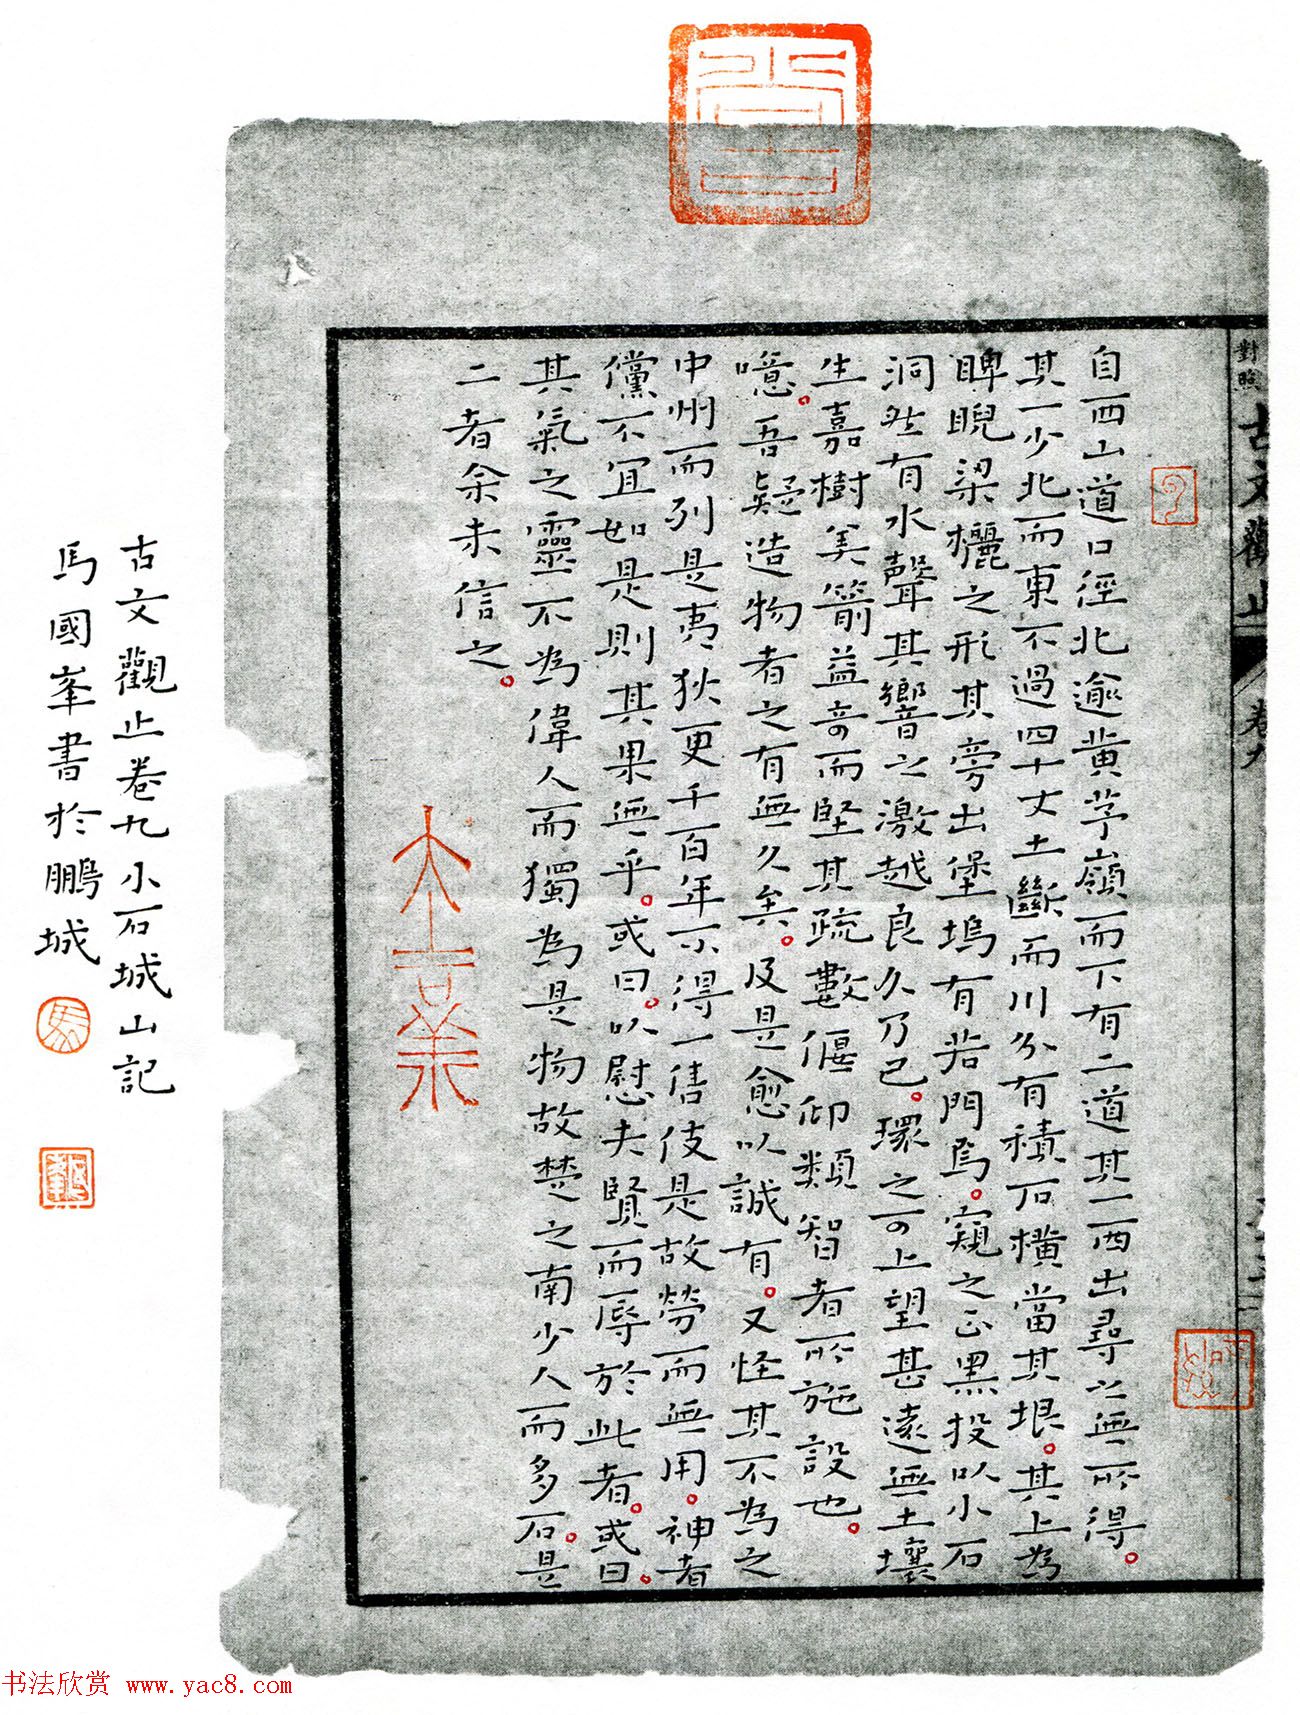 對照 古文觀止 卷九
自西山道口徑北逾黄茅嶺而下有二道其一西出尋之無所得。
其一少北而東不過四十丈土斷而川分有積石橫當其垠。其上為
睥睨梁欐之形其旁出堡塢有若門焉。窺之正黑投以小石
洞然有水聲其響之激越良久乃已。環之可上望甚遠無土壤
生嘉樹美箭益奇而堅其疏數偃仰類智者所施設也。
噫。吾疑造物者之有無久矣。及是愈以誠有。又怪其不為之
中州而列是夷狄更千百年不得一售伎是故勞而無用。神者
儻不宜如是則其果無乎。或曰。以慰夫賢而辱於此者。或曰。
其氣之靈不為偉人而獨為是物故楚之南少人而多石。是
二者余未信之。
古文觀止卷九小石城山記
馬國峯書於鵬城
馬
书法欣赏 www.yac8.com